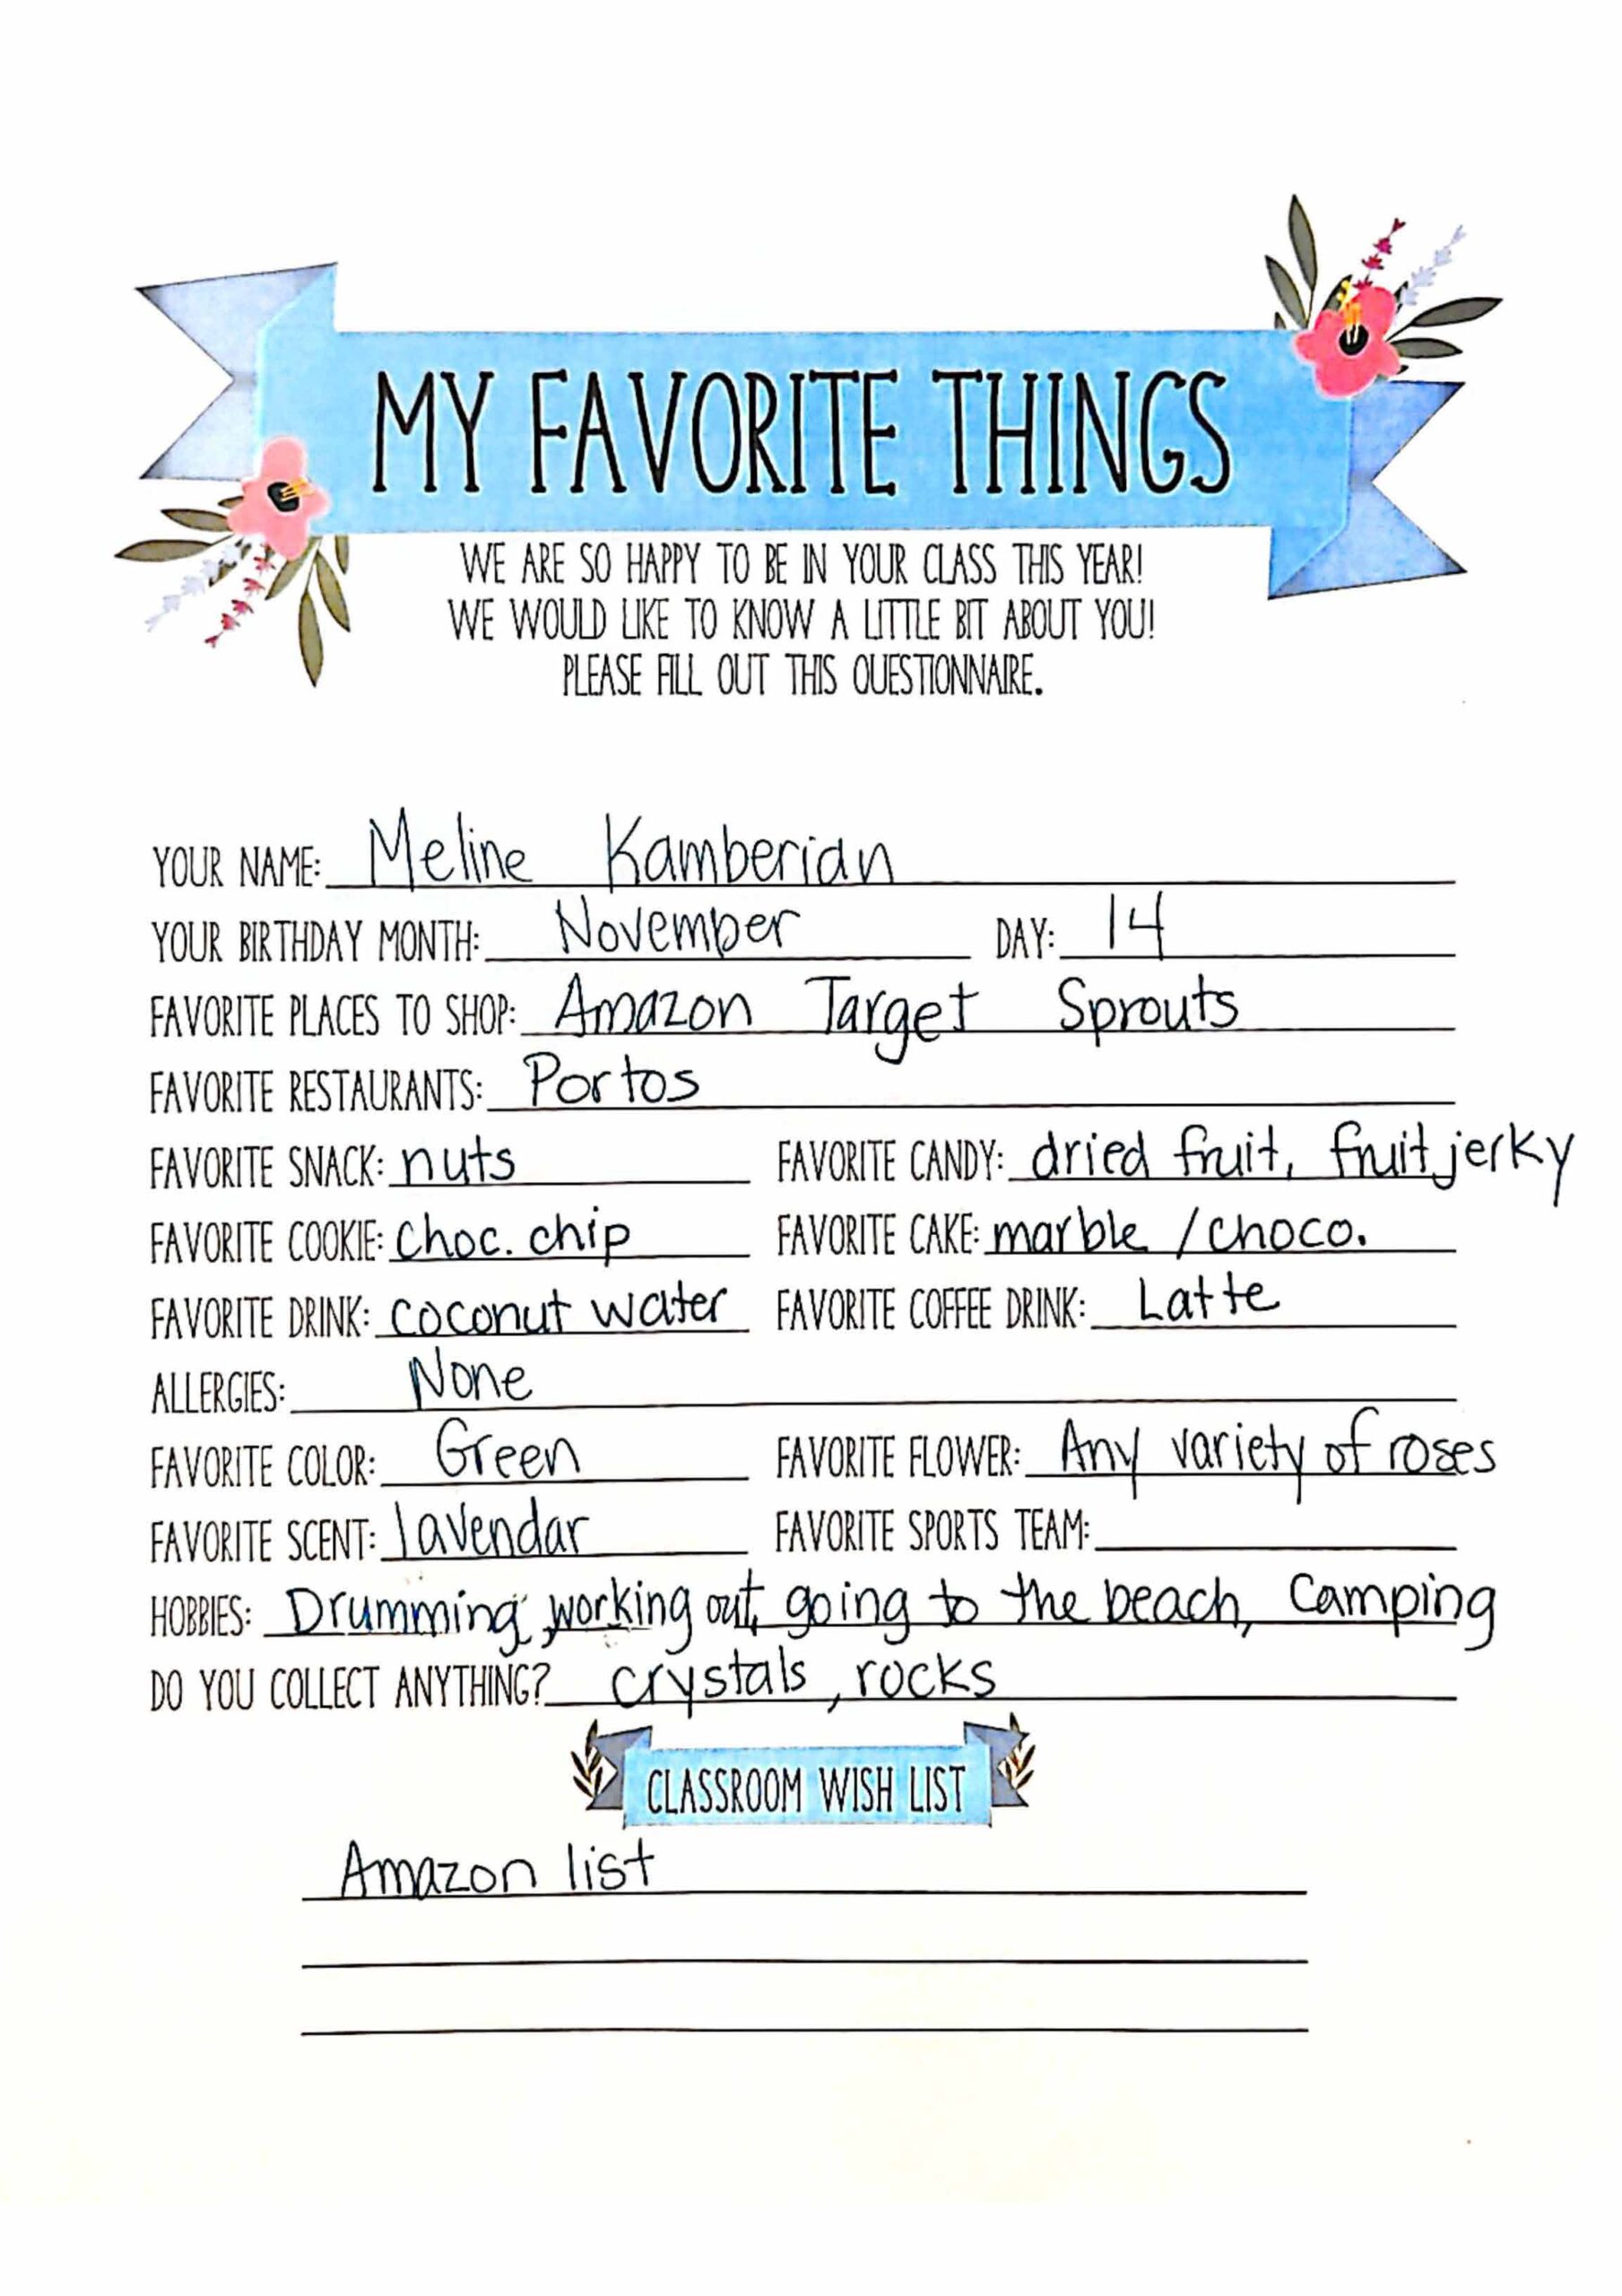 MY FAVORITE THINGS
WE ARE SO HAPPY TO BE IN YOUR CLASS THIS YEAR!
WE WOULD LIKE TO KNOW A LITTLE BIT ABOUT YOU!
PLEASE FILL OUT THIS QUESTIONNAIRE.
YOUR NAME: Meline Kamberian
YOUR BIRTHDAY MONTH: November DAY: 14
FAVORITE PLACES TO SHOP: Amazon Target Sprouts
FAVORITE RESTAURANTS: Portos
FAVORITE SNACK: nuts FAVORITE CANDY: dried fruit, fruit jerky
FAVORITE COOKIE: choc. chip FAVORITE CAKE: marble / choco.
FAVORITE DRINK: coconut water FAVORITE COFFEE DRINK: Latte
ALLERGIES: None
FAVORITE COLOR: Green FAVORITE FLOWER: Any variety of roses
FAVORITE SCENT: lavendar FAVORITE SPORTS TEAM:
HOBBIES: Drumming, working out, going to the beach, Camping
DO YOU COLLECT ANYTHING? crystals, rocks
CLASSROOM WISH LIST
Amazon list